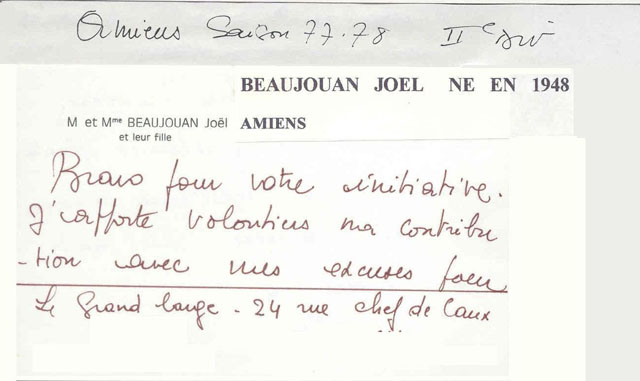 Amiens Saison 77-78 IIe div
BEAUJOUAN JOEL NE EN 1948
M et Mme BEAUJOUAN Joël AMIENS
et leur fille
Bravo pour votre initiative.
J'apporte volontiers ma contribu
-tion avec mes excuses pour
Le Grand large - 24 rue chef de Caux